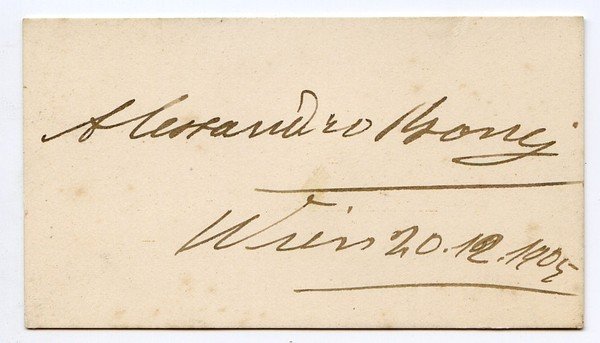 Alessandro Bonci
Wien 20.12.1905